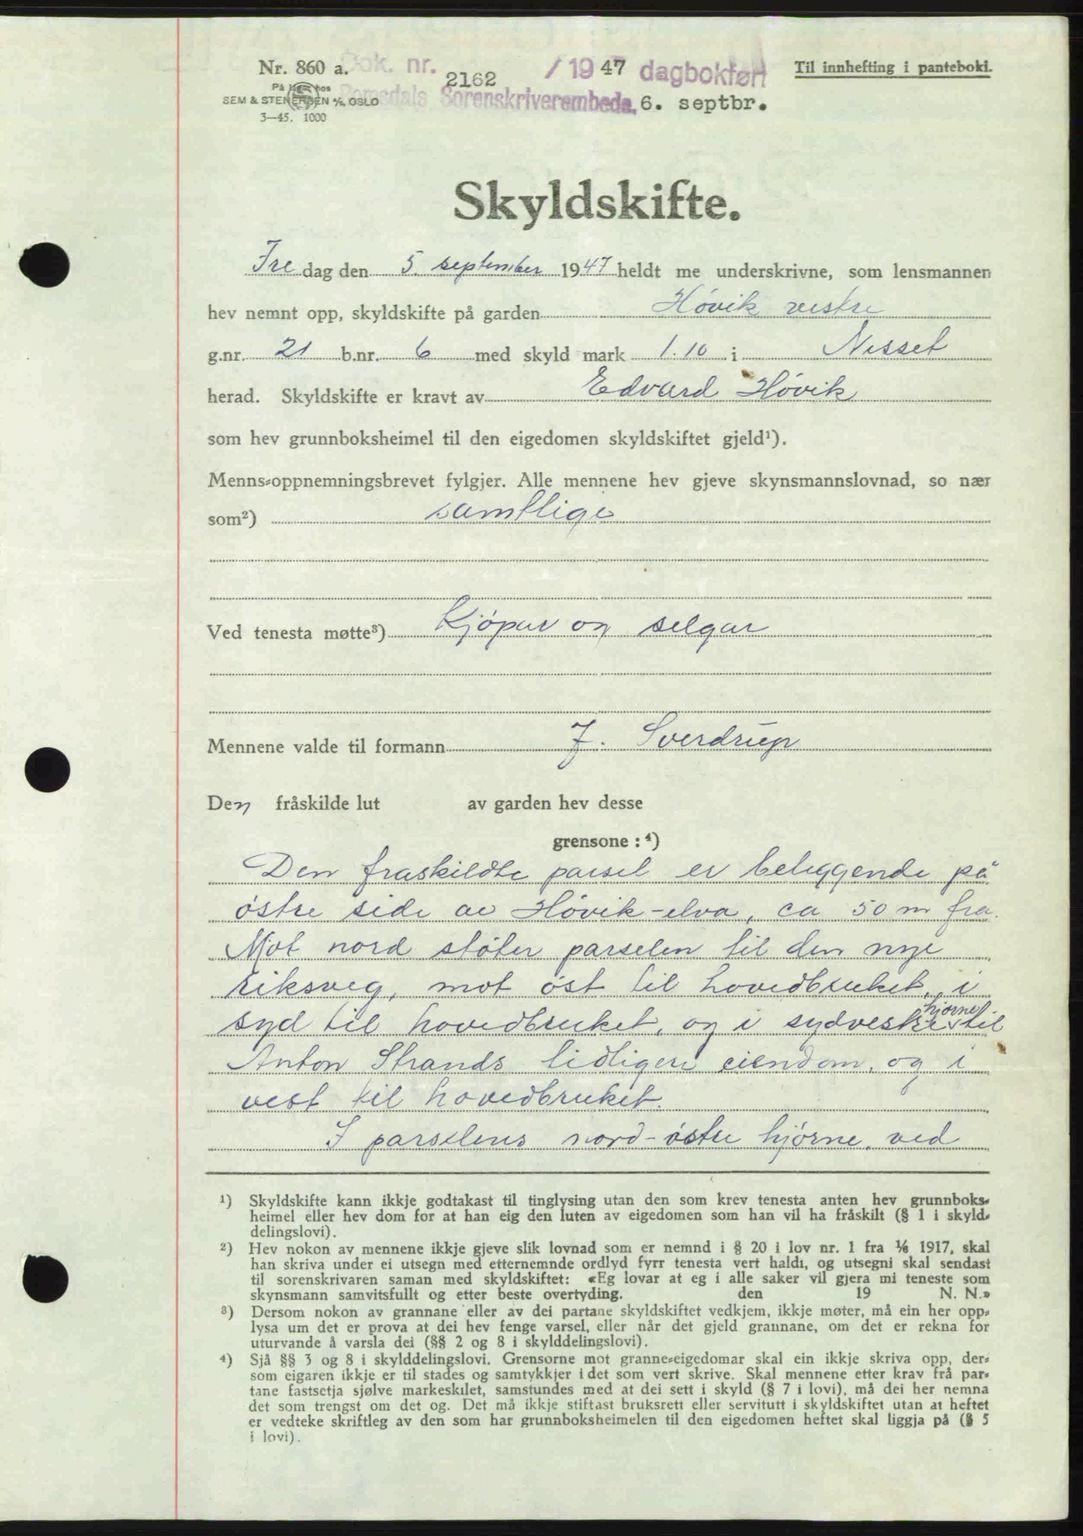 Nr. 860 a. Dok. nr. 2162 / 1947 dagbokført Til innhefting i pantebok.
På lager hos
SEM & STENERSEN A/S, OSLO Romsdals Sorenskriverembede, 6. septbr.
3—45. 1000
Skyldskifte.
Fre dag den 5. september 1947 heldt me underskrivne, som lensmannen
hev nemnt opp, skyldskifte på garden Høvik vestre
g.nr. 21 b.nr. 6 med skyld mark 1.10 i Nesset
herad. Skyldskifte er kravt av Edvard Høvik
som hev grunnboksheimel til den eigedomen skyldskiftet gjeld¹).
Menns-oppnemningsbrevet fylgjer. Alle mennene hev gjeve skynsmannslovnad, so nær
som²) samtlige
Ved tenesta møtte³) Kjøpar og selgar
Mennene valde til formann J. Sverdrup
Den fråskilde lut av garden hev desse
grensone : ⁴)
Den fraskildte parsel er beliggende på
østre side av Høvik-elva, ca 50 m fra.
Mot nord støter parselen til den nye
riksveg, mot øst til hovedbruket, i
syd til hovedbruket, og i sydvestre hjørne til
Anton Strands tidligere eiendom, og i
vest til hovedbruket.
I parselens nord-østre hjørne, ved
¹) Skyldskifte kann ikkje godtakast til tinglysing utan den som krev tenesta anten hev grunnboks-
heimel eller hev dom for at han eig den luten av eigedomen som han vil ha fråskilt (§ 1 i skyld-
delingslovi).
²) Hev nokon av mennene ikkje gjeve slik lovnad som er nemnd i § 20 i lov nr. 1 fra ⅙ 1917, skal
han skriva under ei utsegn med etternemnde ordlyd fyrr tenesta vert haldi, og utsegni skal sendast
til sorenskrivaren saman med skyldskiftet: «Eg lovar at eg i alle saker vil gjera mi teneste som
skynsmann samvitsfullt og etter beste overtyding. den 19 N. N.»
³) Dersom nokon av grannane eller av dei partane skyldskiftet vedkjem, ikkje møter, må ein her opp-
lysa um det er prova at dei hev fenge varsel, eller når det gjeld grannane, om det er rekna for
uturvande å varsla dei (§§ 2 og 8 i skylddelingslovi).
⁴) Sjå §§ 3 og 8 i skylddelingslovi. Grensorne mot granne-eigedomar skal ein ikkje skriva opp, der-
som eigaren ikkje er til stades og samtykkjer i det som vert skrive. Skal mennene etter krav frå par-
tane fastsetja sjølve markeskilet, samstundes med at dei sett i skyld (§ 7 i lovi), må dei her nemna
det som trengst om det og. Det må ikkje stiftast bruksrett eller servitutt i skyldskiftet utan at heftet
er vedteke skriftleg av den som har grunnboksheimelen til den eigedomen heftet skal liggja på (§ 5
i lovi).